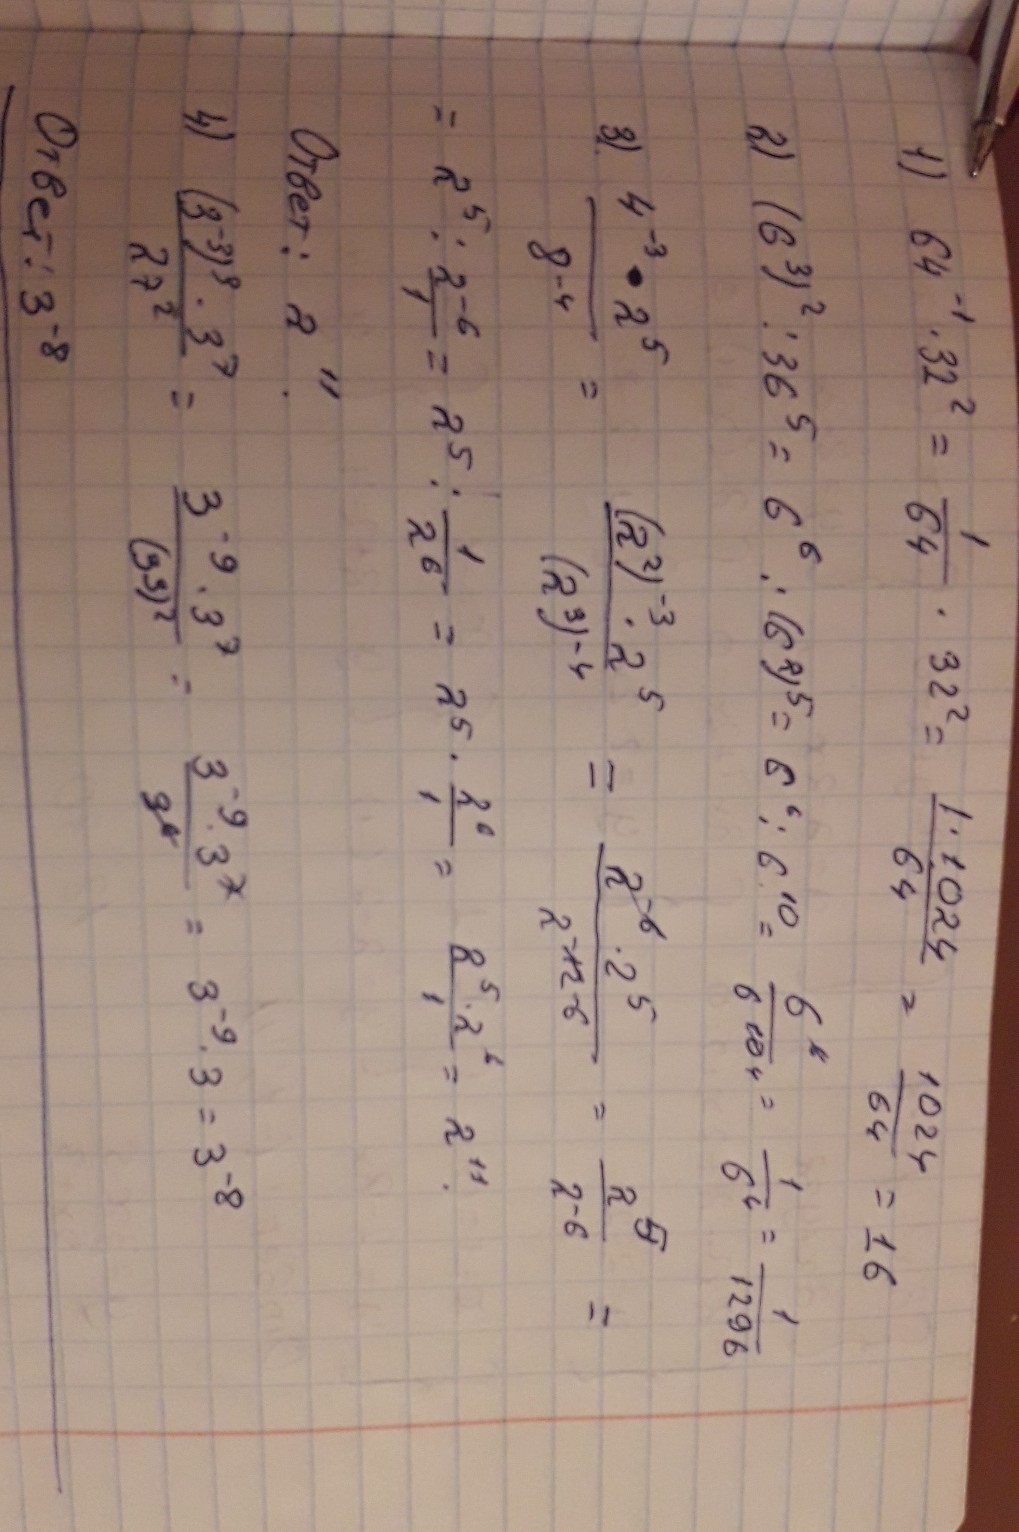 1) 64⁻¹ · 32² = 1/64 · 32² = 1·1024/64 = 1024/64 = 16
2) (6³)² : 36⁵ = 6⁶ : (6²)⁵ = 6⁶ : 6¹⁰ = 6⁶/6¹⁰ = 1/6⁴ = 1/1296
3) 4⁻³ · 2⁵/8⁻⁴ = (2²)⁻³ · 2⁵/(2³)⁻⁴ = 2⁻⁶ · 2⁵/2⁻¹² ⁻⁶ = 2⁵/2⁻⁶ =
= 2⁵ : 2⁻⁶/1 = 2⁵ : 1/2⁶ = 2⁵ · 2⁶/1 = 2⁵ · 2⁶/1 = 2¹¹.
Ответ: 2¹¹.
4) (3⁻³)³ · 3⁷/27² = 3⁻⁹ · 3⁷/(3³)² = 3⁻⁹ · 3⁷/3⁶ = 3⁻⁹ · 3 = 3⁻⁸
Ответ: 3⁻⁸